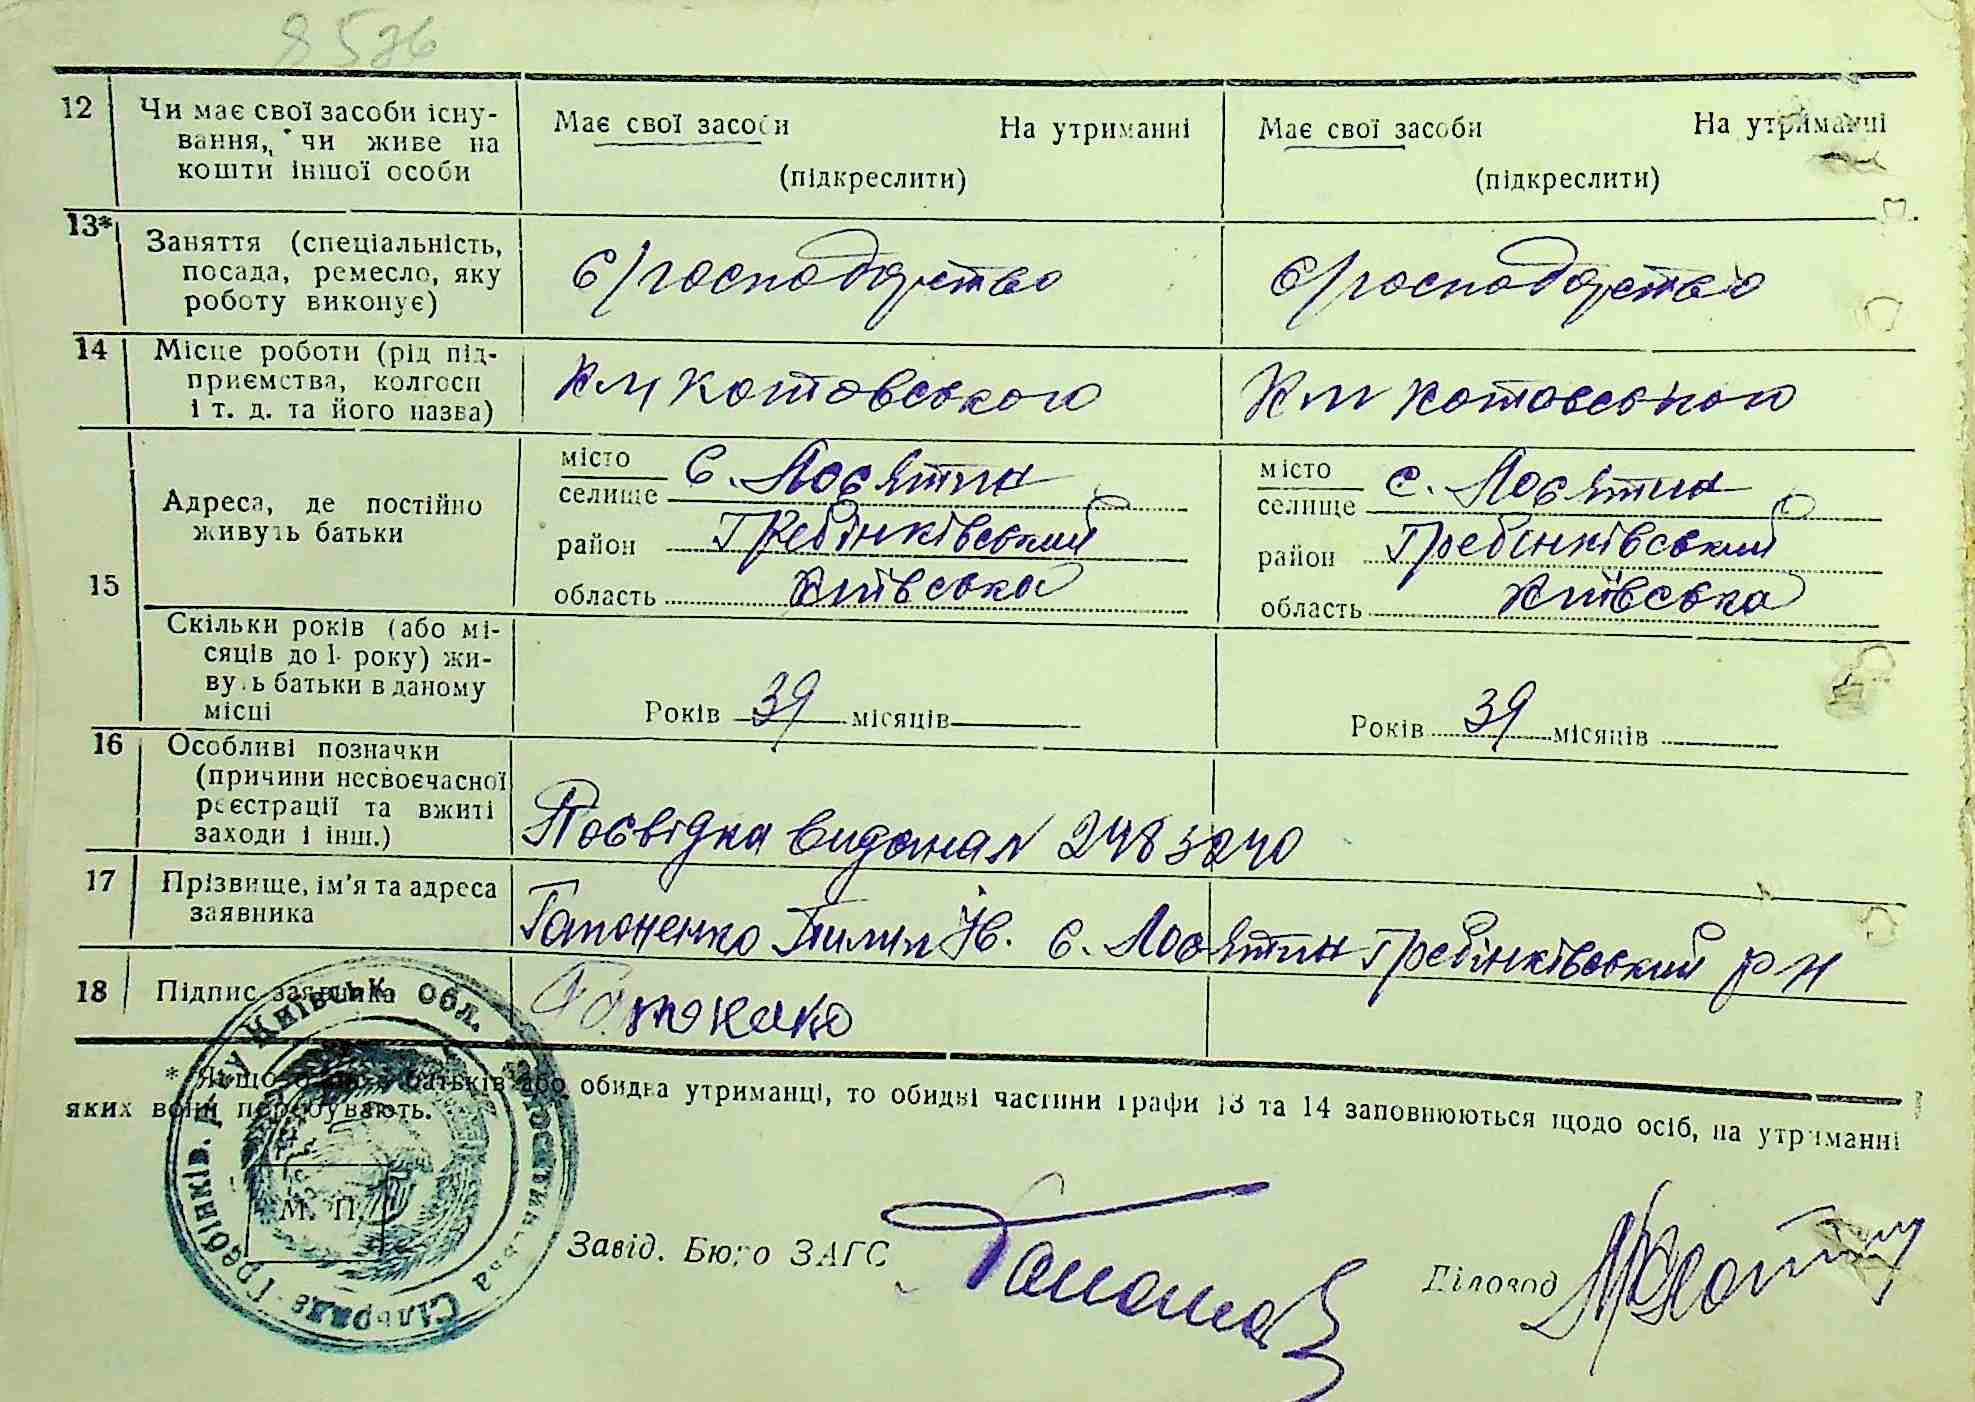 8526
12 Чи має свої засоби існу-
вання, чи живе на
кошти іншої особи
Має свої засоби На утриманні
(підкреслити)
Має свої засоби На утриманні
(підкреслити)
13* Заняття (спеціальність,
посада, ремесло, яку
роботу виконує)
с/господарство
с/господарство
14 Місце роботи (рід під-
приємства, колгосп
і т. д. та його назва)
К м Котовського
К м Котовського
15 Адреса, де постійно
живуть батьки
місто
селище с. Лосятин
район Гребінківський
область Київська
місто
селище с. Лосятин
район Гребінківський
область Київська
Скільки років (або мі-
сяців до 1 року) жи-
вуть батьки в даному
місці
Років 39 місяців
Років 39 місяців
16 Особливі позначки
(причини несвоєчасної
реєстрації та вжиті
заходи і інш.)
Посвідка видана N 2483240
17 Прізвище, ім'я та адреса
заявника
Гапоненко Ів. с. Лосятин Гребінківський р н
18 Підпис заявника
Гапоненко
* Якщо батьків або обидва утриманці, то обидві частини графи 13 та 14 заповнюються щодо осіб, на утриманні
яких вони перебувають.
Гребінків. р-ну Київськ. Обл. Лосятинська Сільрада
М. П.
Завід. Бюро ЗАГС
Діловод